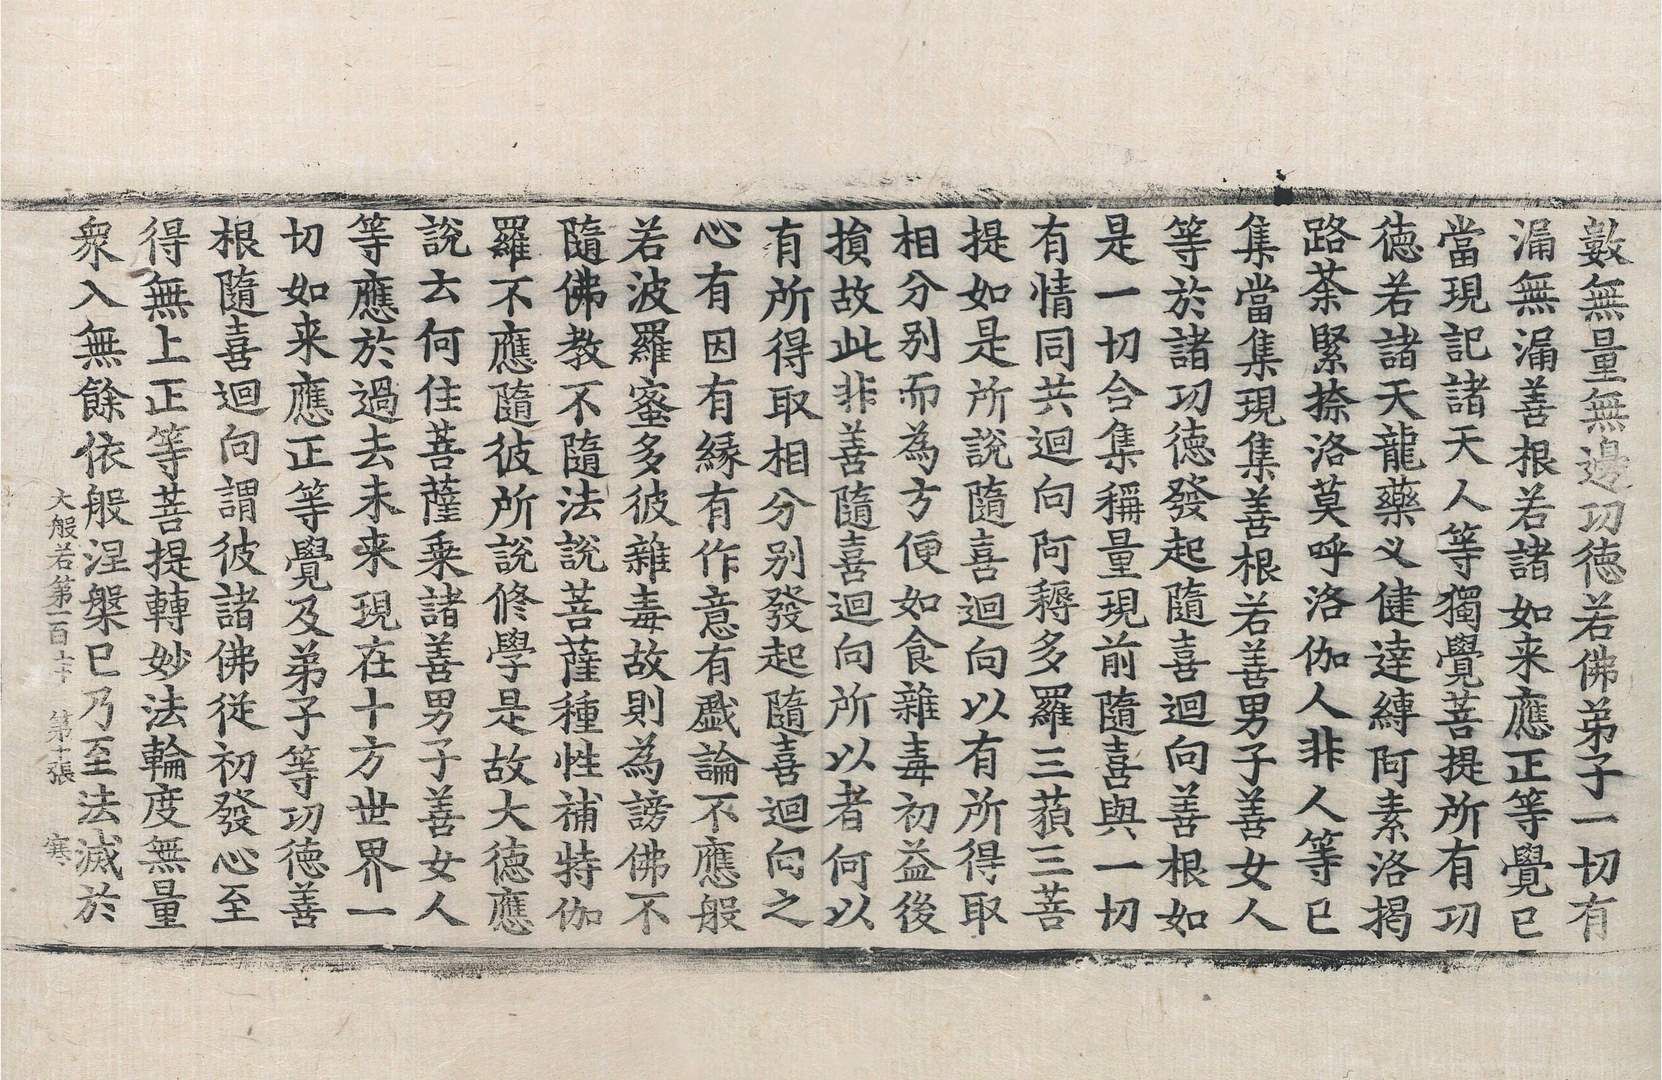 數無量無邊功德若佛弟子一切有
漏無漏善根若諸如来應正等覺已
當現記諸天人等獨覺菩提所有功
德若諸天龍藥义健達縛阿素洛揭
路荼緊捺洛莫呼洛伽人非人等已
集當集現集善根若善男子善女人
等於諸功德發起隨喜迴向善根如
是一切合集稱量現前隨喜與一切
有情同共迴向阿耨多羅三藐三菩
提如是所說隨喜迴向以有所得取
相分别而為方便如食雜毒初益後
損故此非善隨喜迴向所以者何以
有所得取相分别發起隨喜迴向之
心有因有縁有作意有戲論不應般
若波羅蜜多彼雜毒故則為謗佛不
隨佛教不隨法說菩薩種性補特伽
羅不應隨彼所說修學是故大德應
說云何住菩薩乘諸善男子善女人
等應於過去未来現在十方世界一
切如来應正等覺及弟子等功德善
根隨喜迴向謂彼諸佛從初發心至
得無上正等菩提轉妙法輪度無量
衆入無餘依般涅槃已乃至法滅於
大般若第一百 第十張 寒